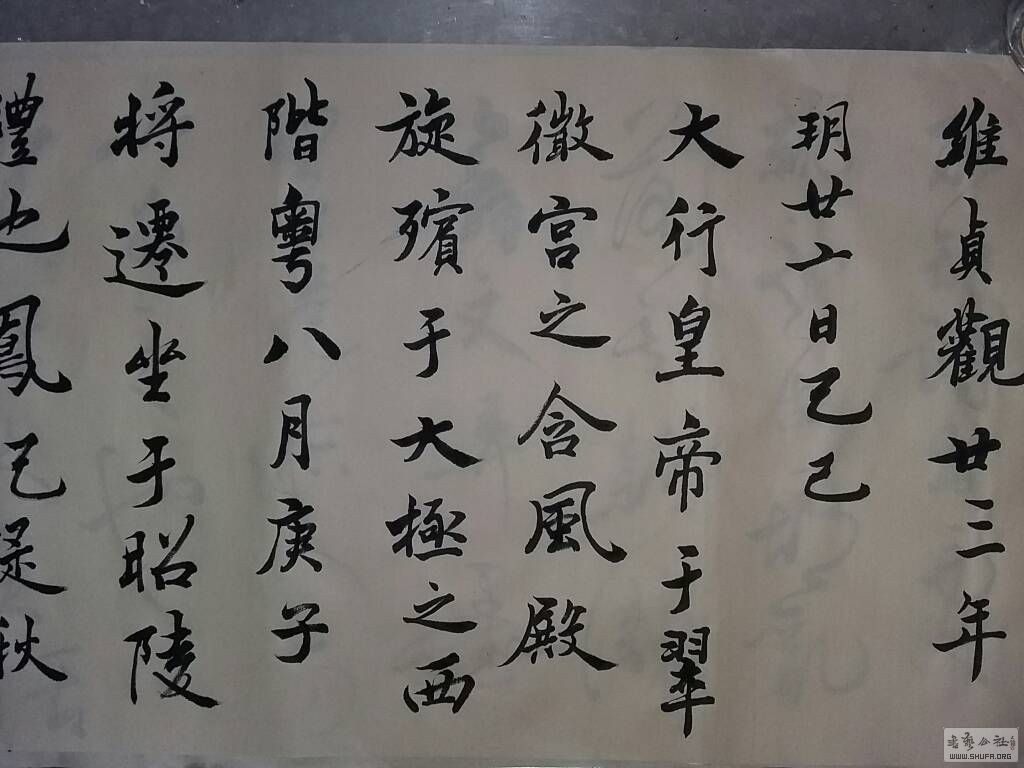 維貞觀廿三年
玥廿二日己己
大行皇帝于翠
微宮之含風殿
旋殯于大極之西
階粵八月庚子
將遷坐于昭陵
禮也鳳
書藝公社
WWW.SHUFA.ORG